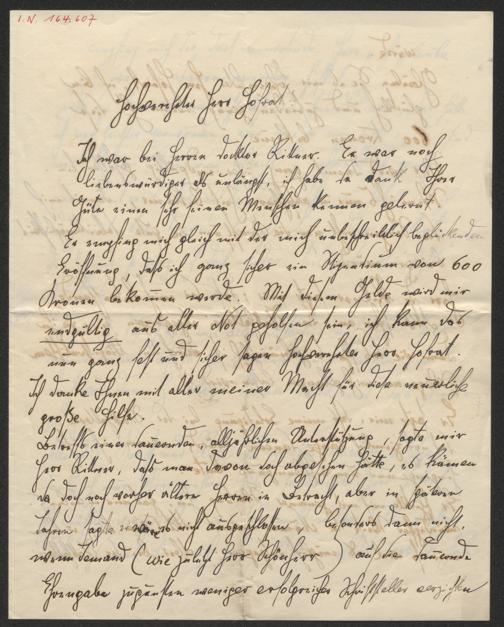 I.N. 164.607
Hochverehrter Herr Hofrat
Ich war bei Herrn Doktor Rittner. Er war noch
liebenswürdiger als unlängst, ich habe da dank Ihrer
Güte einen sehr feinen Menschen kennen gelernt.
Er empfing mich gleich mit der mich unbeschreiblich beglückenden
Eröffnung, daß ich ganz sicher ein Stipendium von 600
Kronen bekommen werde. Mit diesem Gelde wird mir
endgültig aus aller Not geholfen sein, ich kann das
nun ganz fest und sicher sagen hochverehrter Herr Hofrat.
Ich danke Ihnen mit aller meiner Macht für diese neuerliche
große Hilfe.
Betreffs einer dauernden, alljährlichen Unterstützung, sagte mir
Herr Rittner, daß man davon doch abgesehen hätte, es kämen
da doch noch vorher ältere Herren in Betracht, aber in spätern
Jahren sagte er wäre es nicht ausgeschlossen, besonders dann nicht,
wenn Jemand (wie zuletzt Herr Schönherr) auf die dauernde
Ehrengabe zugunsten weniger erfolgreicher Schriftsteller verzichten